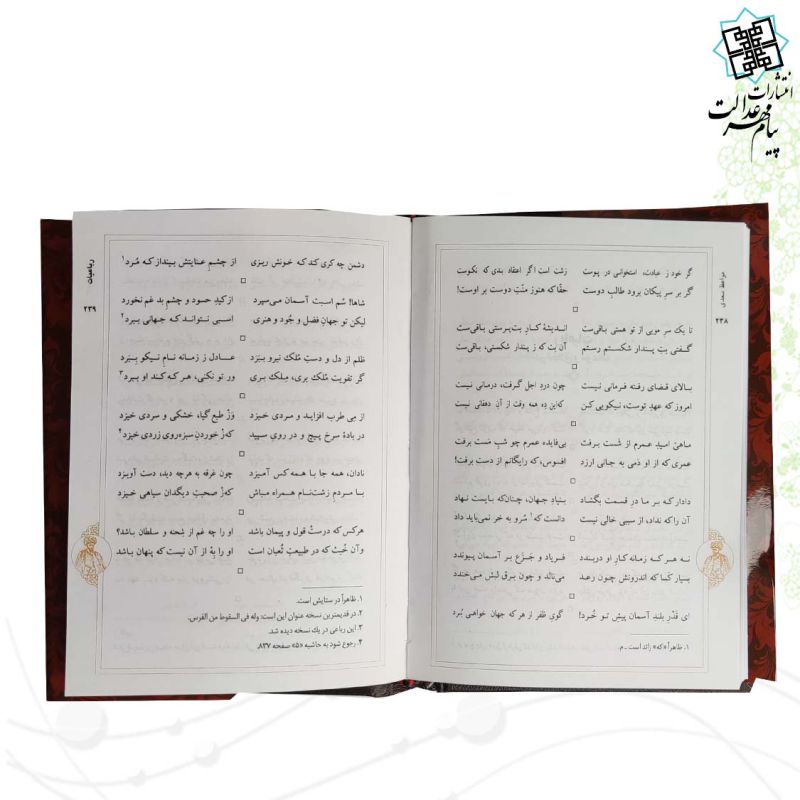 انتشارات
پیام مهر عدالت
مواعظ سعدی
۲۳۸
گر خود ز عبادت، استخوانی در پوست زشت است اگر اعتقاد بندی که نکوست
گر بر سر پیکان برود طالبِ دوست حقّا که هنوز منّتِ دوست بر اوست!
تا یک سر مویی از تو هستی باقی‌ست اندیشهٔ کار بت‌پرستی باقی‌ست
گفتی بتِ پندار شکستم رستم آن بت که ز پندار شکستی، باقی‌ست
بالای قضای رفته فرمانی نیست چون دردِ اجل گرفت، درمانی نیست
امروز که عهدِ توست، نیکویی کن که‌این ده همه وقت از آنِ دهقانی نیست
ماهیِ امیدِ عمرم از شست برفت بی‌فایده عمرم چو شبِ مست برفت
عمری که از او دمی به جانی ارزد افسوس، که رایگانم از دست برفت!
دادار که بر ما در قسمت بگشاد بنیادِ جهان، چنان‌که بایست نهاد
آن را که نداد، از سببی خالی نیست دانست که۱ سَرو به خر نمی‌باید داد
نه هر که زمانه کارِ او دربندد فریاد و جَزَع بر آسمان پیوندد
بسیار کَسا که اندرونش چون رعد می‌نالد و چون برق لبش می‌خندد
ای قَدْرِ بلندِ آسمان پیشِ تو خُرد! گویِ ظفر از هر که جهان خواهی بُرد
۱. ظاهراً «که» زائد است ـ م.
رباعیات
۲۳۹
دشمن چه کری کند که خونش ریزی از چشمِ عنایتش بینداز که مُرد۱
شاها! سُم اسبت آسمان می‌سپرد از کیدِ حسود و چشمِ بد غم نخورد
لیکن تو جهانِ فضل و جُود و هنری اسبی نتواند که جهانی ببرد۲
ظلم از دل و دستِ مُلک نیرو ببَرَد عادل ز زمانه نامِ نیکو ببَرَد
گر تقویت مُلک بری، مِلک بری ور تو نکنی، هر که کند او ببرد۳
از مِی طرب افزاید و مردی خیزد وَز طبعِ گیا، خشکی و سردی خیزد
در بادهٔ سرخ پیچ و در رویِ سپید کَه‌ز خوردنِ سبزه‌روی زردی خیزد۴
نادان، همه جا با همه کس آمیزد چون غرقه به هرچه دید، دست آویزد
با مردمِ زشت‌نام همراه مباش که‌ز صحبتِ دیگدان سیاهی خیزد
هرکس که درستْ قول و پیمان باشد او را چه غم از شِحنه و سلطان باشد؟
وآن خُبث که در طبیعتِ ثُعبان است او را بِهْ از آن نیست که پنهان باشد
۱. ظاهراً در ستایش است.
۲. در قدیمترین نسخه عنوان این است: وله فی السقوط من الفرس.
۳. این رباعی در یك نسخه دیده شد.
۴. رجوع شود به حاشیه «۵» صفحه ۸۳۷.